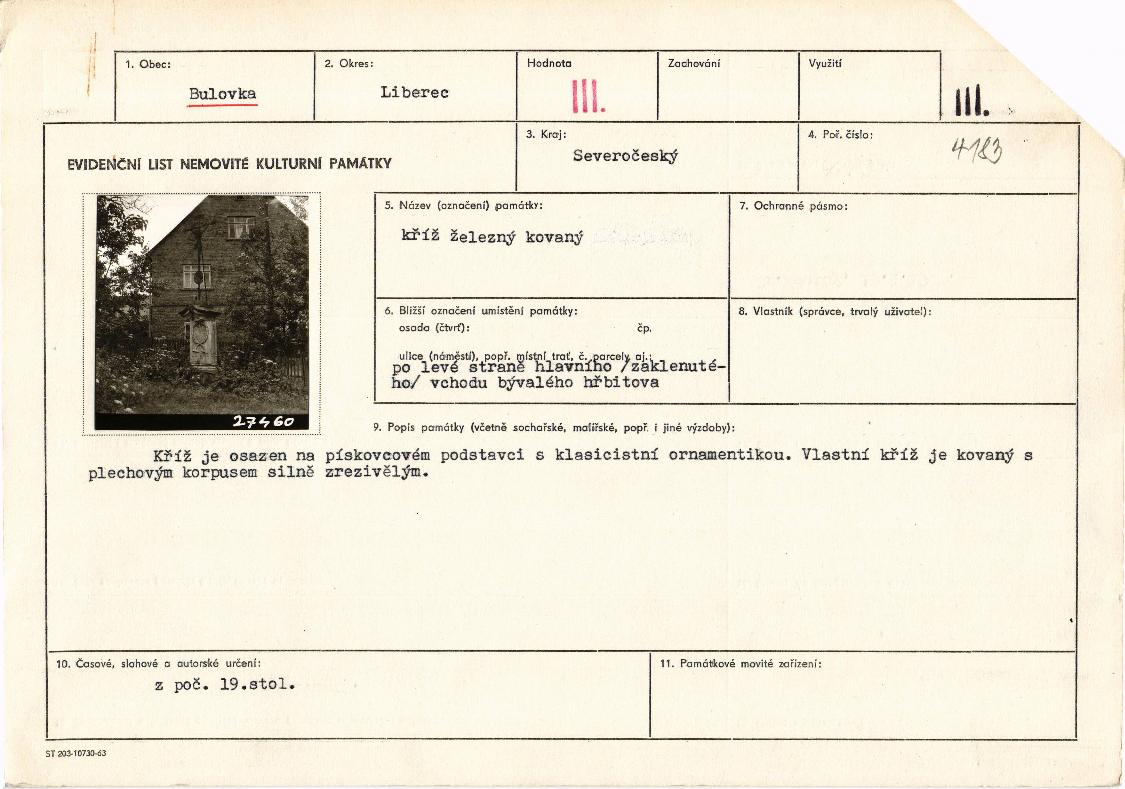 1. Obec:
Bulovka
2. Okres:
Liberec
Hodnota
III.
Zachování
Využití
III.
3. Kraj:
Severočeský
4. Poř. číslo:
4183
EVIDENČNÍ LIST NEMOVITÉ KULTURNÍ PAMÁTKY
27460
5. Název (označení) památky:
kříž železný kovaný
7. Ochranné pásmo:
6. Bližší označení umístění památky:
osada (čtvrť): čp.
ulice (náměstí), popř. místní trať, č. parcely aj.:
po levé straně hlavního /zaklenuté-
ho/ vchodu bývalého hřbitova
8. Vlastník (správce, trvalý uživatel):
9. Popis památky (včetně sochařské, malířské, popř. i jiné výzdoby):
Kříž je osazen na pískovcovém podstavci s klasicistní ornamentikou. Vlastní kříž je kovaný s
plechovým korpusem silně zrezivělým.
10. Časové, slohové a autorské určení:
z poč. 19.stol.
11. Památkové movité zařízení:
ST 203-10730-63